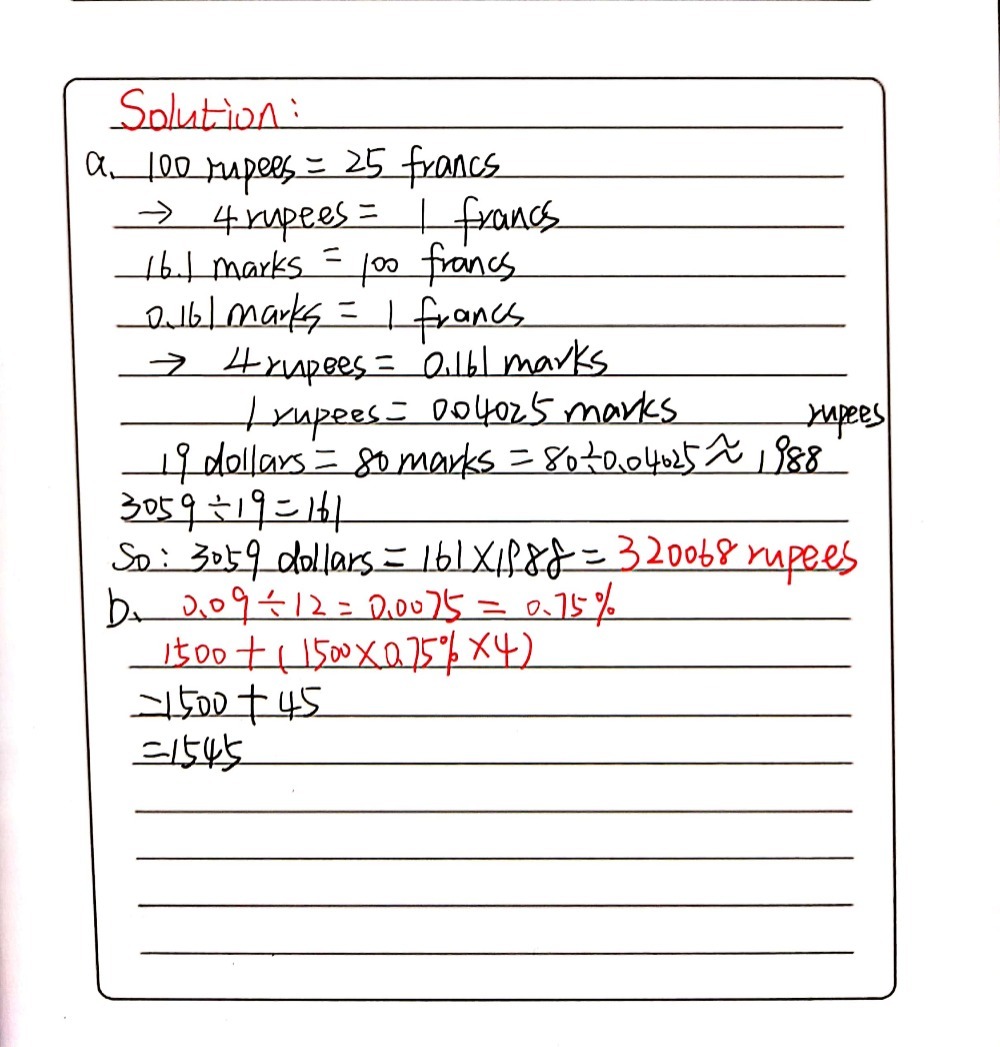 Solution:
a. 100 rupees = 25 francs
→ 4 rupees = 1 francs
16.1 marks = 100 francs
0.161 marks = 1 francs
→ 4 rupees = 0.161 marks
1 rupees = 0.04025 marks
19 dollars = 80 marks = 80÷0.04025 ≈ 1988 rupees
3059 ÷ 19 = 161
So: 3059 dollars = 161 X 1988 = 320068 rupees
b. 0.09 ÷ 12 = 0.0075 = 0.75%
1500 + (1500 X 0.75% X 4)
= 1500 + 45
= 1545